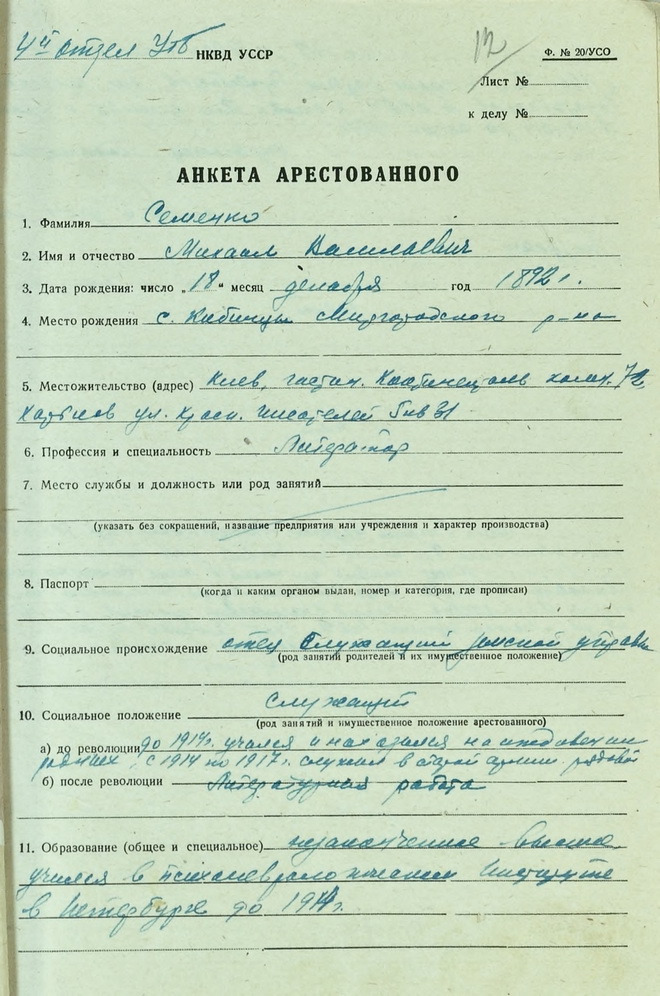 4й отдел УГБ НКВД УССР
12
Ф. № 20/УСО
Лист №
к делу №
АНКЕТА АРЕСТОВАННОГО
1. Фамилия Семенко
2. Имя и отчество Михаил Васильевич
3. Дата рождения: число „18“ месяц декабря год 1892 г.
4. Место рождения с. Кибинцы Миргородского р-на
5. Местожительство (адрес) Киев, гостин. Континенталь комн.
Харьков ул. Красн. писателей 5 кв 31
6. Профессия и специальность Литератор
7. Место службы и должность или род занятий
(указать без сокращений, название предприятия или учреждения и характер производства)
8. Паспорт
(когда и каким органом выдан, номер и категория, где прописан)
9. Социальное происхождение отец служащий земской управы
(род занятий родителей и их имущественное положение)
10. Социальное положение служащий
(род занятий и имущественное положение арестованного)
а) до революции до 1914г. учился и находился на иждивении
родных, с 1914 по 1917г. служил в старой армии рядовой
б) после революции Литературная работа
11. Образование (общее и специальное) незаконченное высшее,
учился в психоневрологическом Институте
в Петербурге до 1914г.